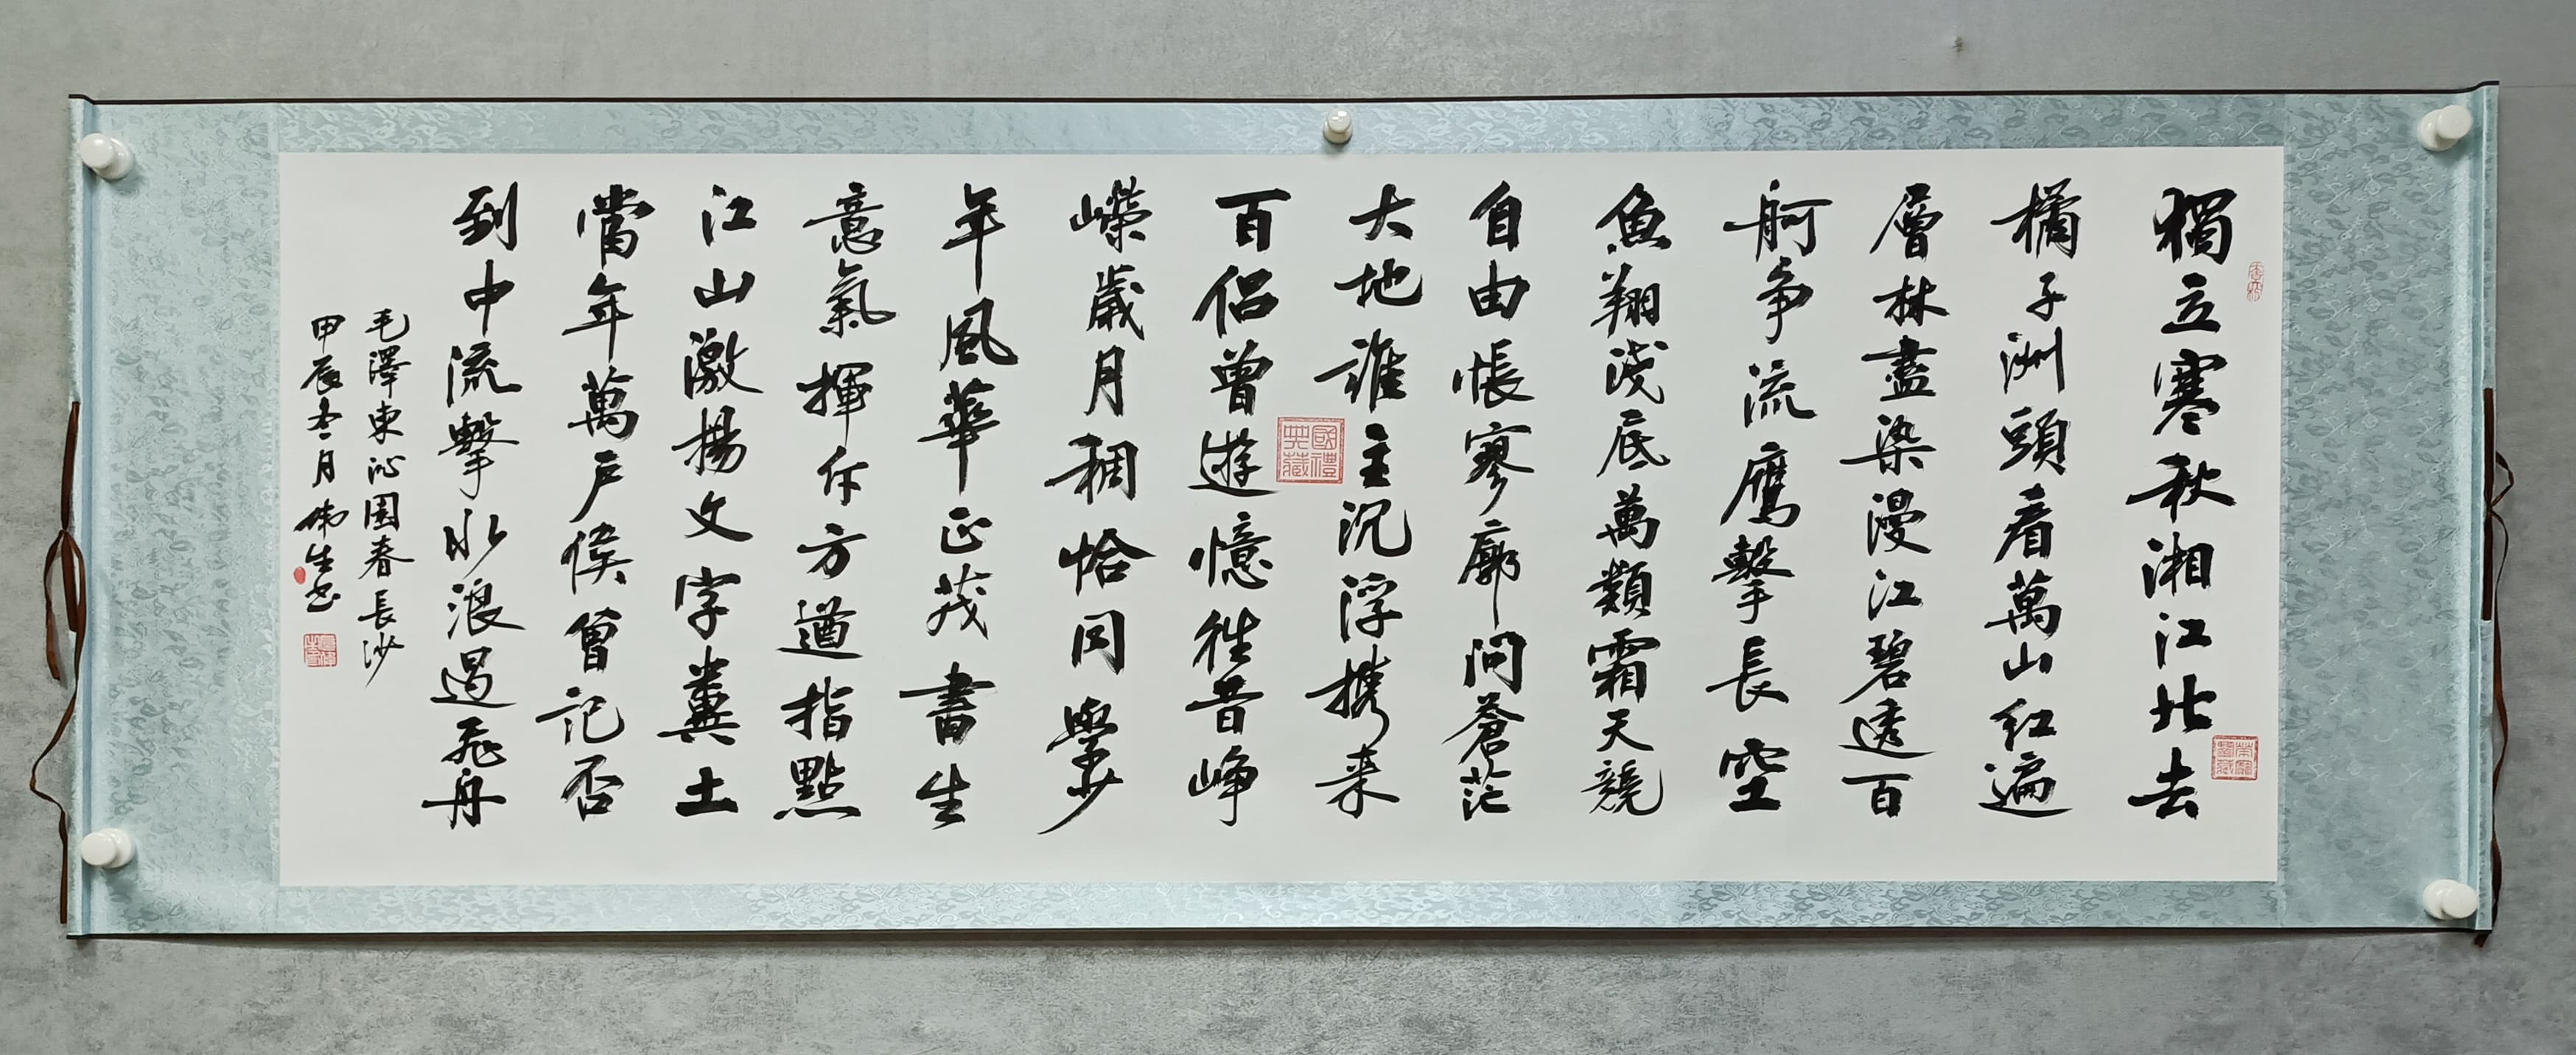 獨立寒秋湘江北去
橘子洲頭看萬山紅遍
層林盡染漫江碧透百
舸争流鷹擊長空
魚翔淺底萬類霜天競
自由悵寥廓問蒼茫
大地誰主沉浮攜来
百侣曾遊憶往昔崢
嶸歲月稠恰同學少
年風華正茂書生
意氣揮斥方遒指點
江山激揚文字糞土
當年萬户侯曾記否
到中流擊水浪遏飛舟
毛澤東沁園春長沙
甲辰冬月偉生书
國禮
典藏